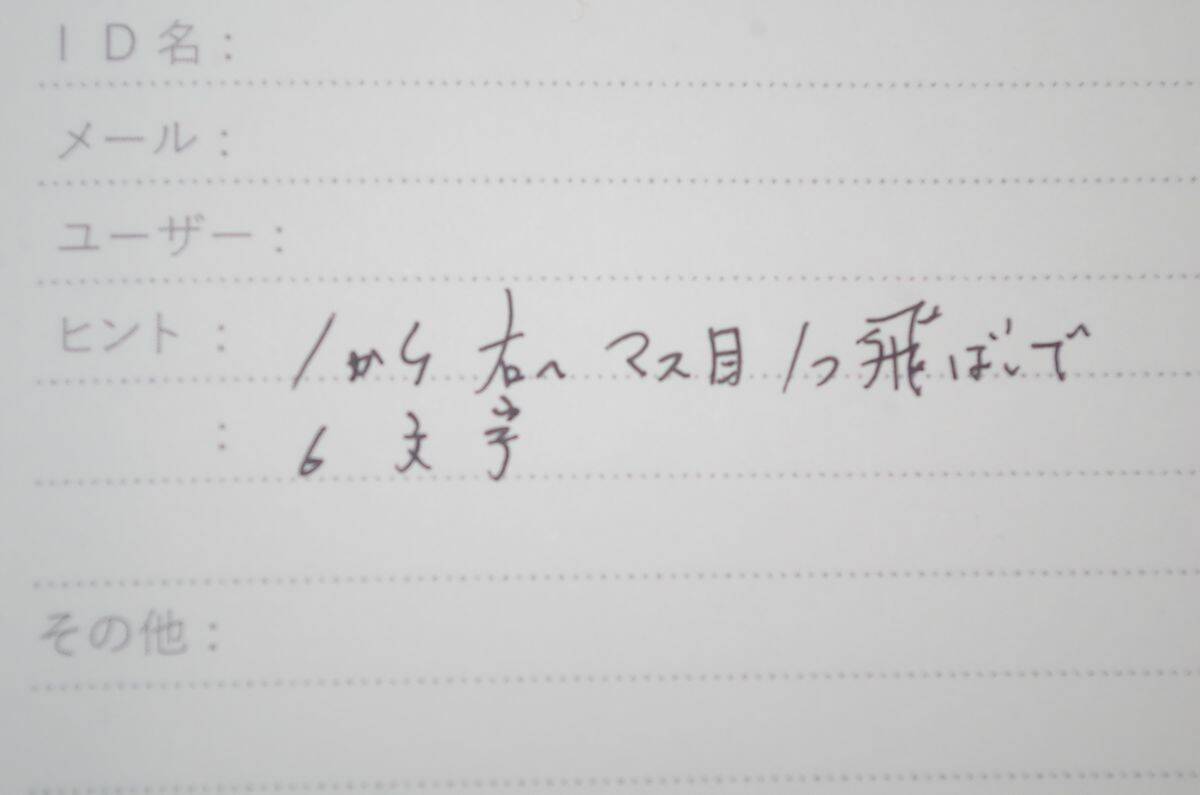 ID名:
メール:
ユーザー:
ヒント: 1から右へマス目1つ飛ばしで
: 6文字
その他: